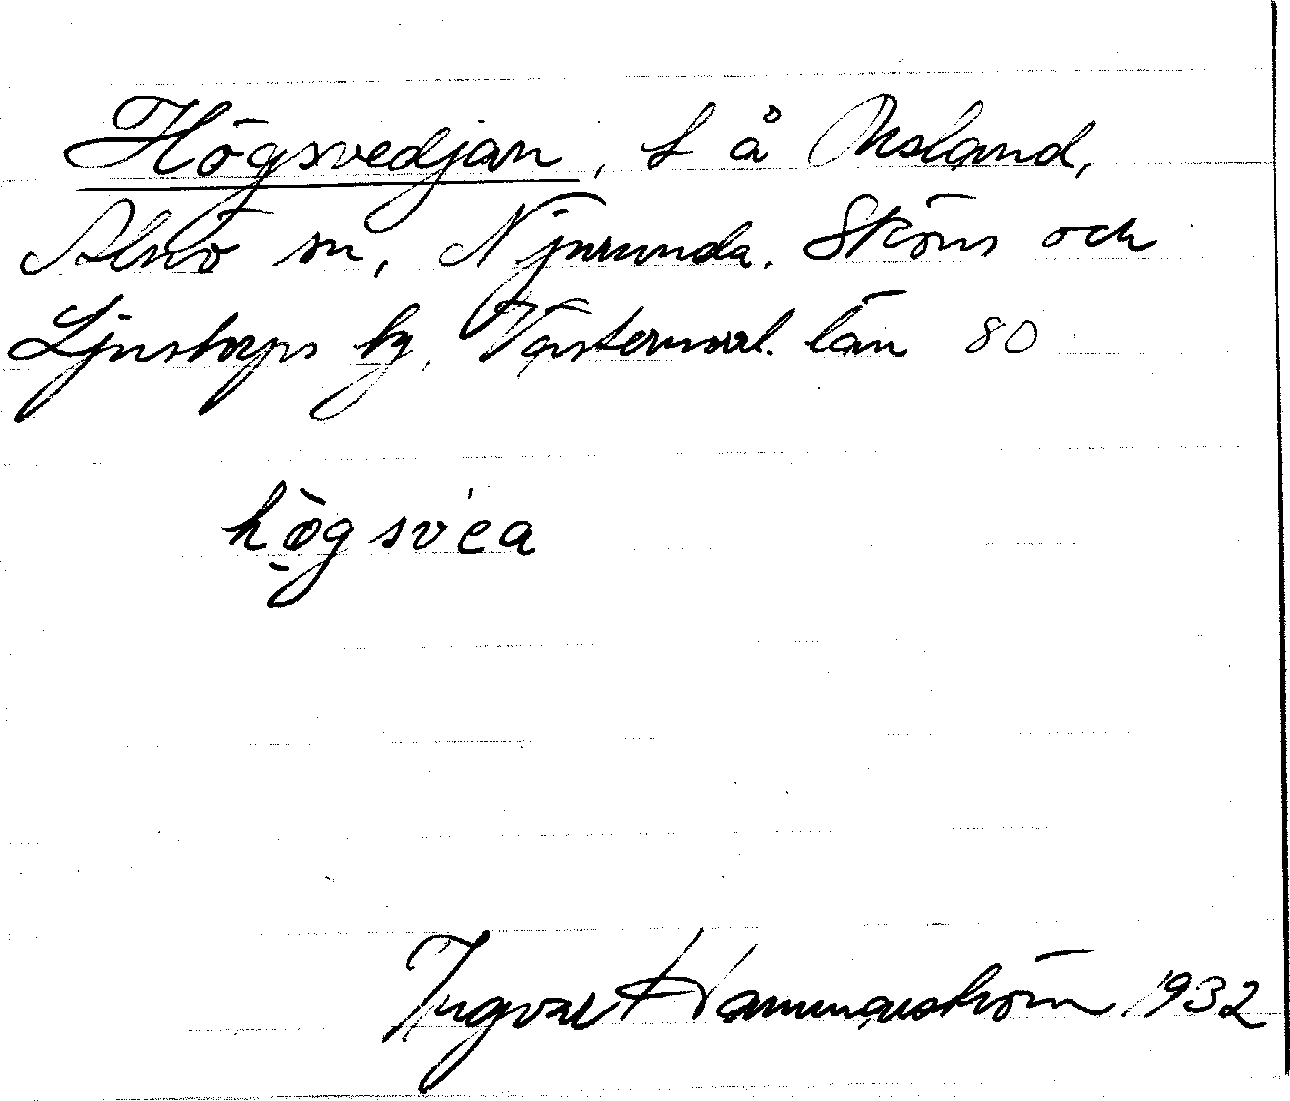 Högsvedjan, f å Öksland,
Alnö sn, Njurunda, Sköns och
Ljustorps tg, Västernorrl. län 80
högsvea
Ingvar Hammarström 1932